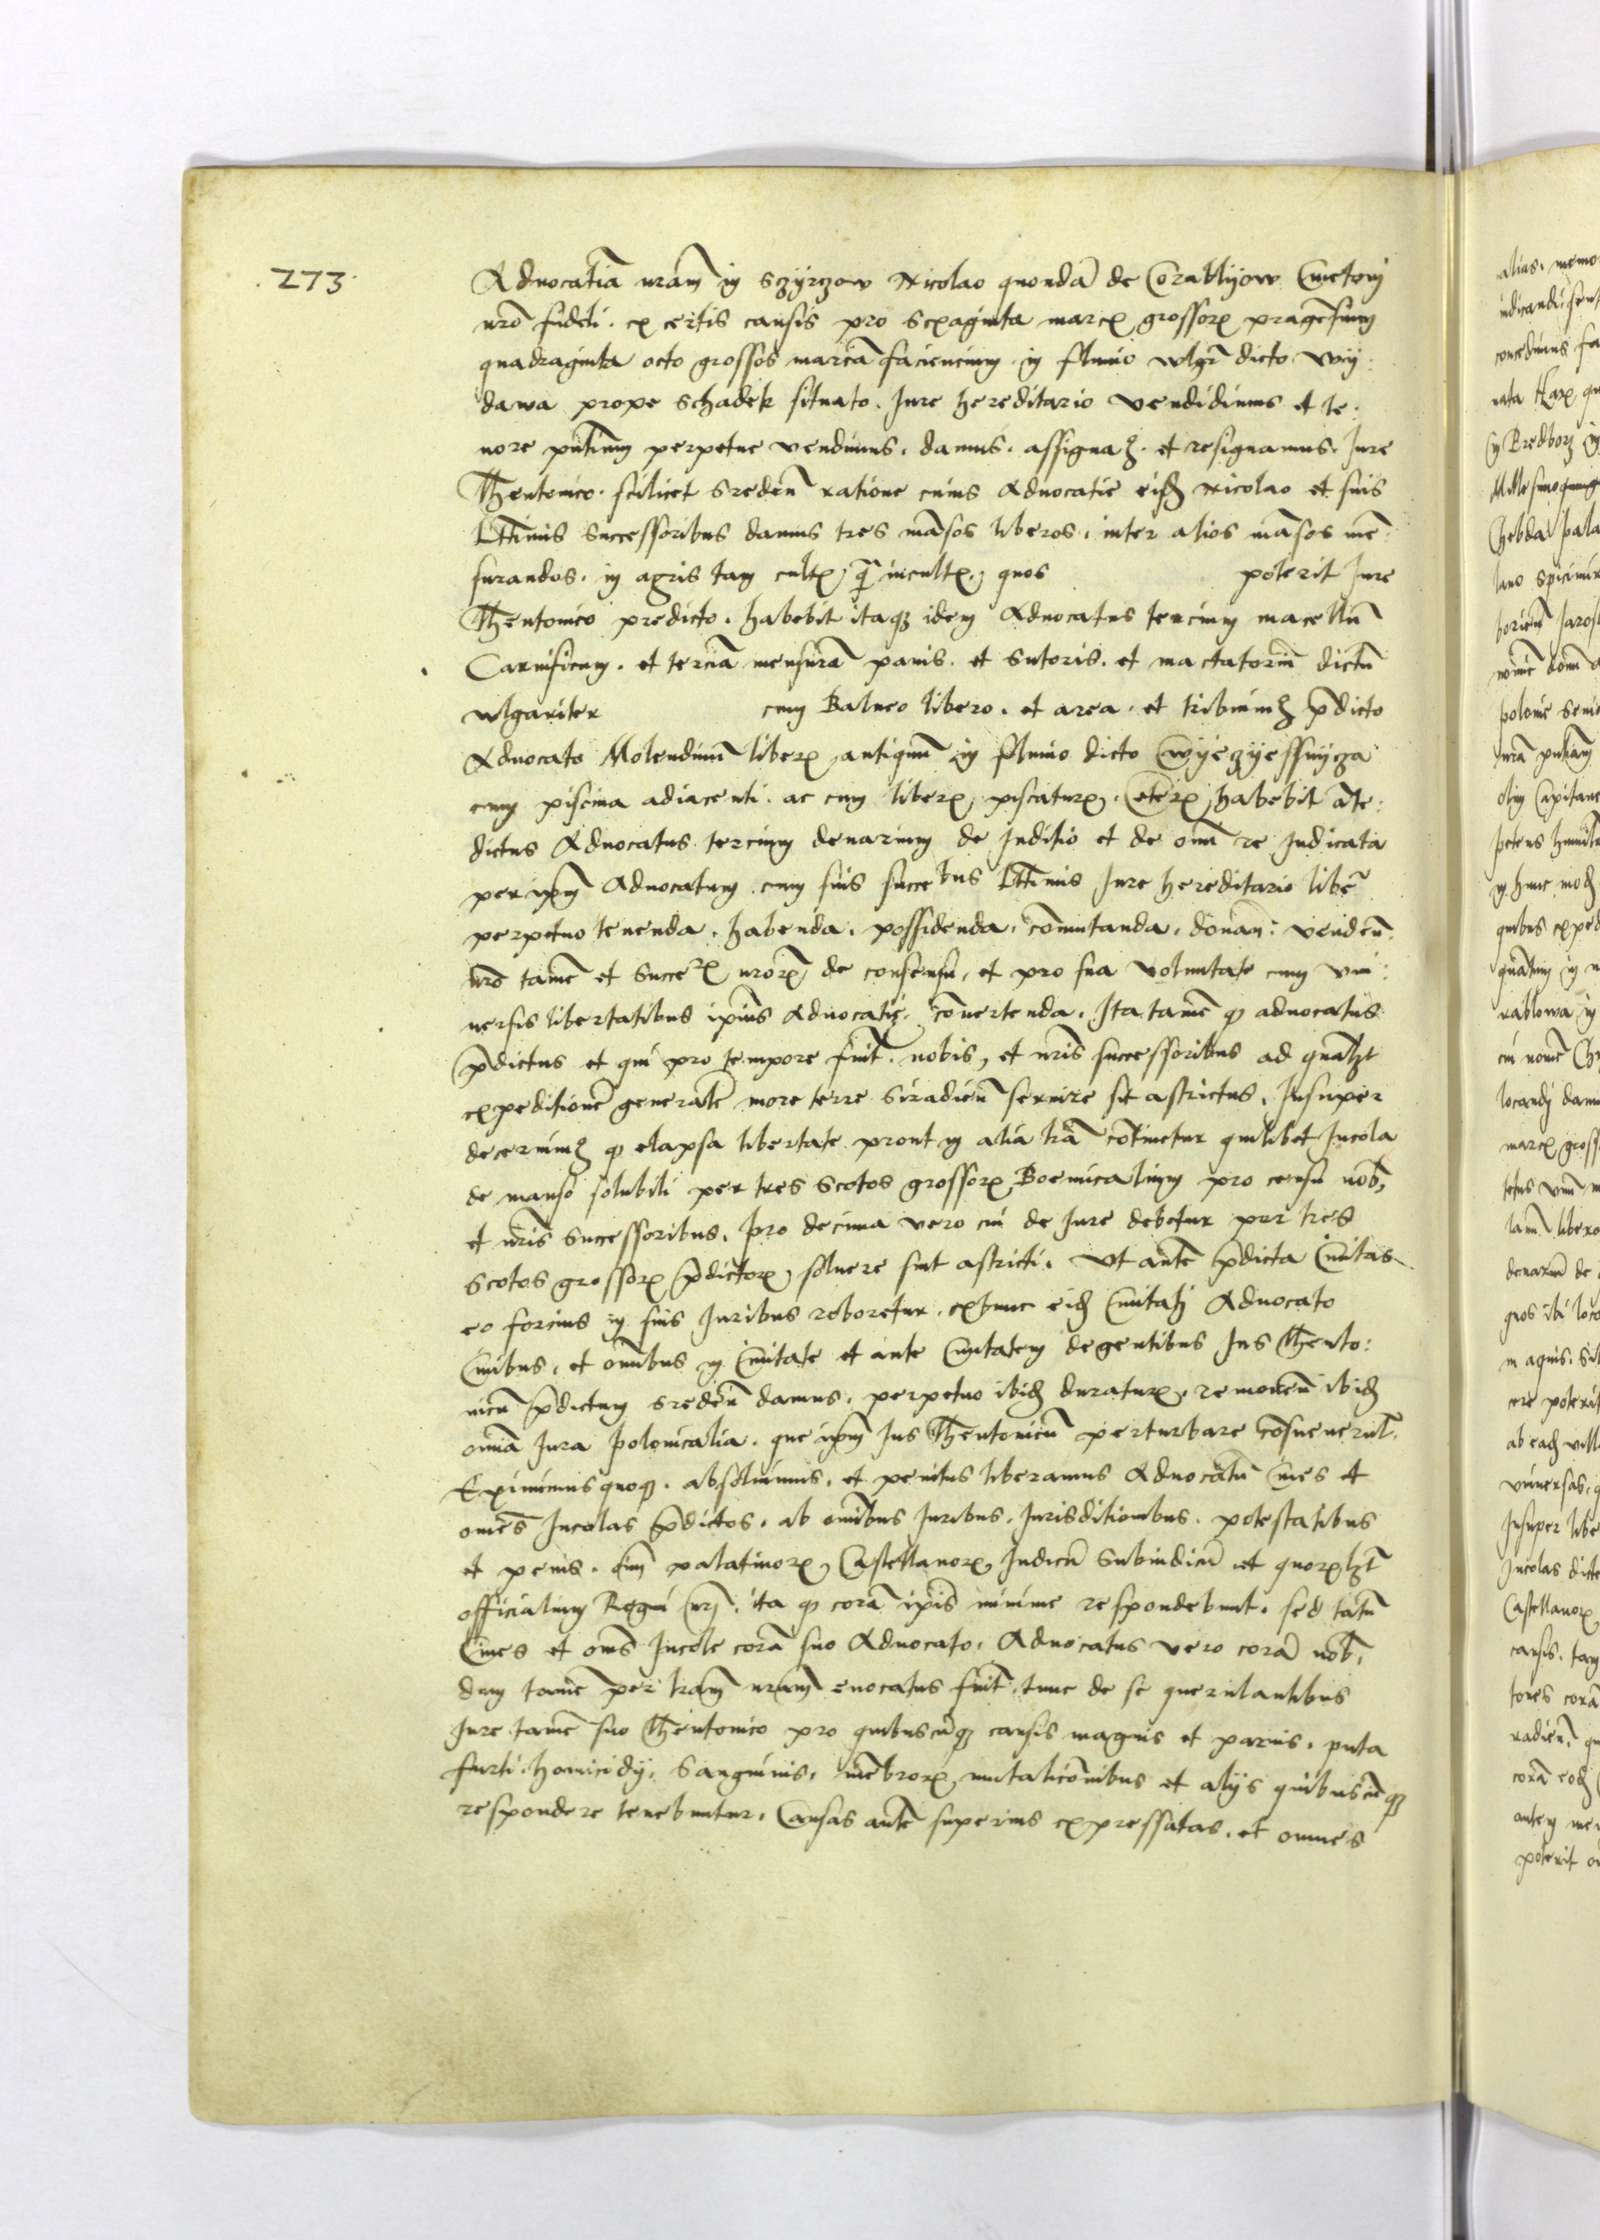 273
Aduocatiā nrām in Sczyrczow Nicolao quondā de Corabliyow Cmetoni
nrō fideli. ex certis causis pro Sexaginta marcꝝ grossorꝝ pragēsium
quadraginta octo grossos marcā faciencium in fluuio wlgr̄ dicto wy:
dawa prope Schadek situato. Iure hereditario vendidimus et te:
nore pn̄tium perpetue vendimus. damus. assignaꝫ. et resignamus. Iure
Theutonico. scilicet Sredeñ ratione cuius Aduocatie eisdꝫ Nicolao et suis
Lttimis Successoribus damus tres māsos liberos. inter alios māsos mē:
surandos. in agris tam cultꝭ, q̄ incultꝭ. quos poterit Iure
Theutonico predicto. habebit itaqꝫ idem Aduocatus tercium macellū
Carnificum. et terciā mensurā panis. et Sutoris. et mactatoriū dictū
wlgariter cum Balneo libero. et area. et tribuimꝫ p̄dicto
Aduocato Molendinū liberꝝ, antiquū in fluuio dicto Cwyeczyessnycza
cum piscina adiacenti. ac cum liberꝝ, piscaturꝝ. Ceterꝝ, habebit āte:
dictus Aduocatus tercium denarium de Iuditio et de omī re Iudicata
per ipm̄ Aduocatum. cum suis succebus Lttimis Iure hereditario liberē
perpetuo tenenda. habenda. possidenda. cōmutanda. donan: vendeñ:
nrō tamē et Succeꝝ nrorꝝ, de consensu, et pro sua voluntate cum vni:
uersis libertatibus ipius Aduocatię, cōuertenda. Ita tamē qꝫ aduocatus
p̄dictus et qui pro tempore fuit. nobis, et nrīs successoribus ad quālꝫt
expeditionē generalē more terre Siradieñ seruire sit astrictus. Insuper
decernimꝫ qꝫ elapsa libertate prout in alia trā cōtinetur quilibet Incola
de manso solubili per tres Scotos grossorꝝ, Boemicalium pro censu nob̄,
et nrīs Successoribus. pro decima vero cui de Iure debetur per tres
Scotos grossorꝝ p̄dictorꝝ, soluere sint astricti. Vt autē p̄dicta Ciuitas
eo forcius in suis Iuribus roboretur. extunc eidꝫ Ciuitati Aduocato
Ciuibus. et omībus in Ciuitate et ante Ciuitatem degentibus Ius Theuto:
nicū p̄dictum Sredeñ damus. perpetuo ibidꝫ duraturꝝ, remoueñ ibidꝫ
omiā Iura polonicalia. que ipm̄ Ius Theutonicū perturbare cōsueuerūt.
Eximimus quoqꝫ. absoluimus. et penitus liberamus Aduocatū Ciues et
omēs Incolas p̄dictos. ab omībus Iuribus. Iurisditionibus. potestatibus
et penis. oīm palatinorꝝ, Castellanorꝝ, Iudicū Subiudicū et quorꝝlꝫt
officialium Regni nrj. ita qꝫ corā ipīs minime respondebunt. sed tātū
Ciues et omēs Incole corā suo Aduocato. Aduocatus vero corā nob̄.
dum tamē per tram̄ nram̄ euocatus fuit̄ tunc de se querulantibus
Iure tamē suo Theutonico pro quibuscūqꝫ causis magnis et paruis. puta
furti. homicidij. Sanguinis. mēbrorꝝ, mutilatiōnibus et alijs quibuscūqꝫ
respondere tenebuntur. Causas autē superius expressatas. et omnes